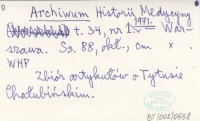 Archiwum Historii Medycyny
t. 34, nr 1. 1971. War-
szawa. Ss. 88, okł., cm x
WHP
Zbiór artykułów o Tytusie
Chałubińskim.
BJ/002/0658